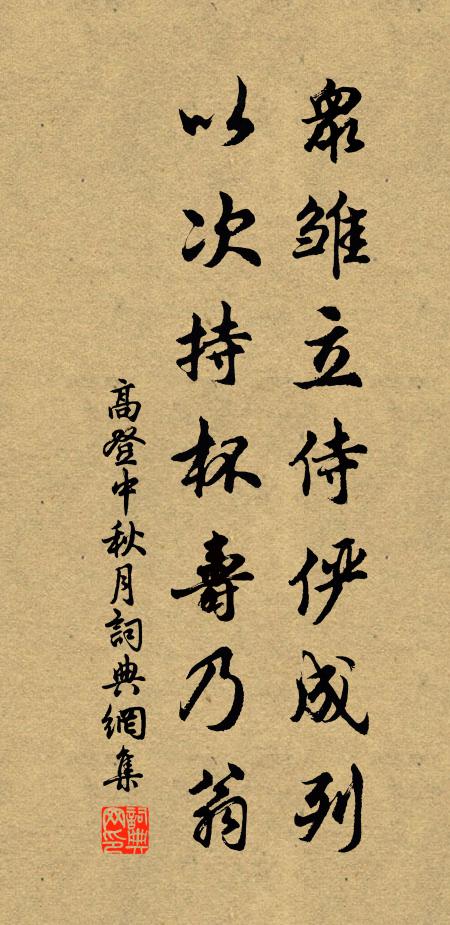 眾雛立侍俨成列
以次持杯壽乃翁
高登中秋月詞典網集
詞典网印